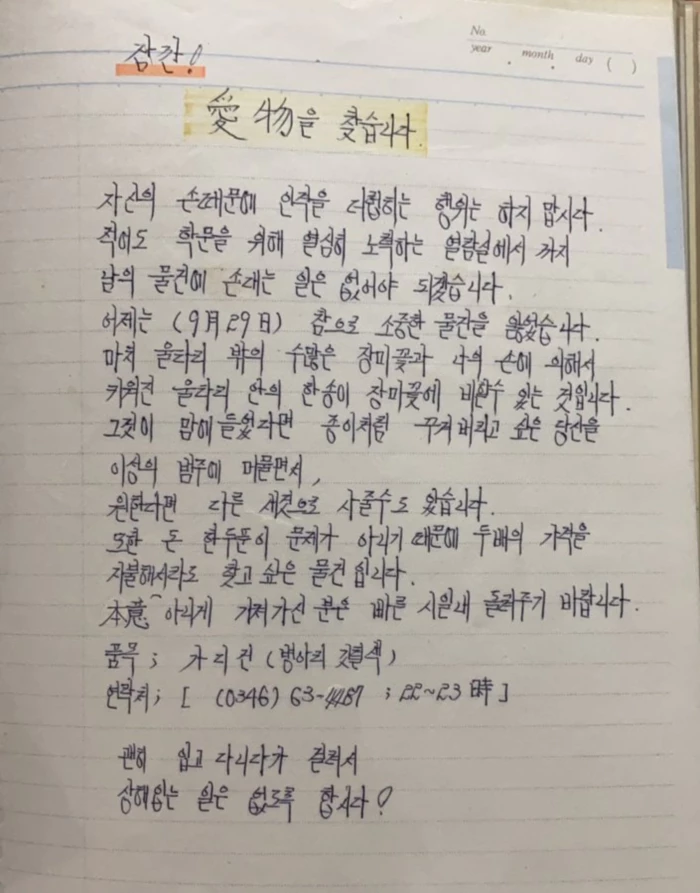 No.
year . month . day ( )
잠깐!
愛物을 찾습니다.
자신의 손때문에 인격을 더럽히는 행위는 하지 맙시다.
적어도 학문을 위해 열심히 노력하는 열람실에서 까지
남의 물건에 손대는 일은 없어야 되겠습니다.
어제는 (9月29日) 참으로 소중한 물건을 잃었습니다.
마치 울타리 밖의 수많은 장미꽃과 나의 손에 의해서
키워진 울타리 안의 한송이 장미꽃에 비할수 있는 것입니다.
그것이 맘에 들었다면 종이처럼 꾸겨 버리고 싶은 당신을
이성의 범주에 머물면서,
원한다면 다른 새것으로 사줄수도 있습니다.
또한 돈 한두푼이 문제가 아니기 때문에 두배의 가격을
지불해서라도 찾고 싶은 물건 입니다.
本意 아니게 가져가신 분은 빠른 시일내 돌려주기 바랍니다.
품목 ; 가디건 (병아리 깃털색)
연락처 ; [ (0346) 63-4487 ; 22~23 時 ]
괜히 입고 다니다가 걸려서
상해입는 일은 없도록 합시다!